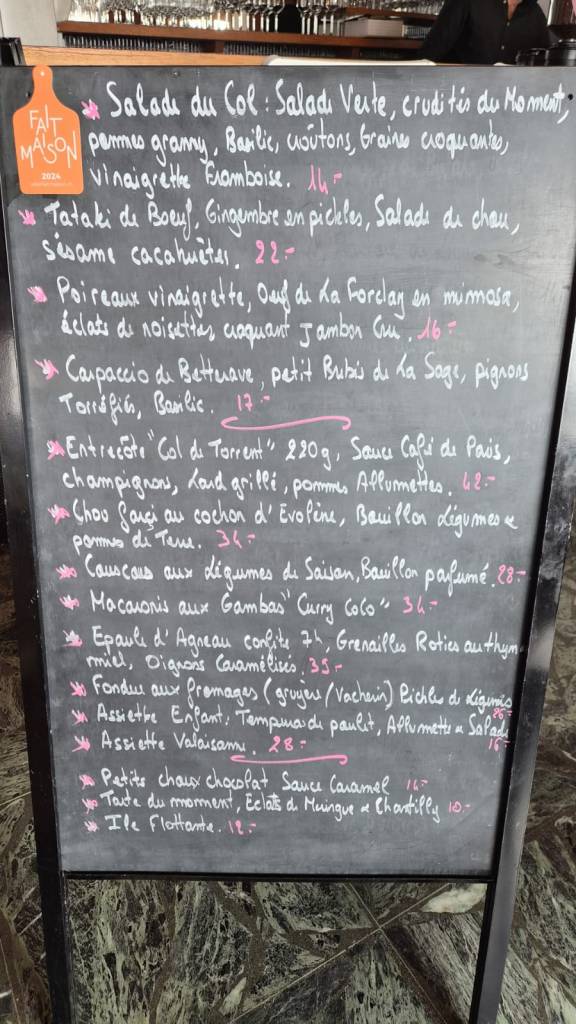 FAIT
MAISON
2024
Salade du Col : Salade Verte, crudités du Moment,
pommes granny, Basilic, croûtons, Graines croquantes,
vinaigrette Framboise. 14.-
Tataki de Boeuf, Gingembre en pickles, Salade de chou,
sésame cacahuètes. 22.-
Poireaux vinaigrette, Oeuf de La Forclay en mimosa,
éclats de noisettes, croquant Jambon Cru. 16.-
Carpaccio de Betterave, petit Brebis de La Sage, pignons
Torréfiés, Basilic. 17.-
Entrecôte "Col de Torrent" 220g, Sauce Café de Paris,
champignons, Lard grillé, pommes Allumettes. 42.-
Chou farçi au cochon d'Evolène, Bouillon Légumes &
pommes de Terre. 34.-
Couscous aux Légumes de Saison, Bouillon parfumé. 28.-
Macaronis aux Gambas "Curry Coco" 34.-
Epaule d'Agneau confite 7h, Grenailles Roties au thym
miel, Oignons Caramélisés 35.-
Fondue aux fromages (gruyère/Vacherin) Pickles de Légumes
26.-
Assiette Enfant: Tempura de poulet, Allumette & Salade
16.-
Assiette Valaisanne. 28.-
Petits choux chocolat Sauce Caramel 14.-
Tarte du moment, Eclats de Meringue & Chantilly 10.-
Ile Flottante. 12.-